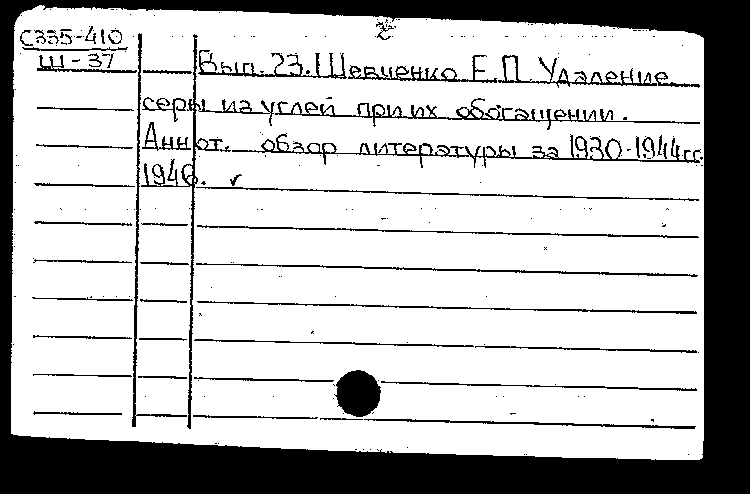 С335-410
Ш-37
Вып. 23. Шевченко Е.П. Удаление
серы из углей при их обогащении.
Аннот. обзор литературы за 1930-1944гг.
1946. ✓